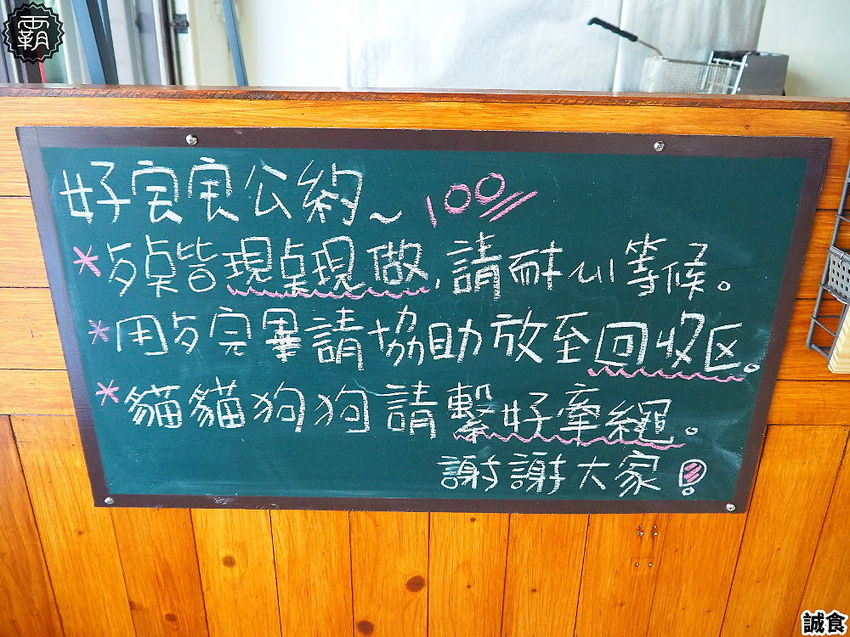 霸
好宝宝公約~ 100
*歺奌皆現奌現做,請耐心等候。
*用歺完畢請協助放至回收区。
*貓貓狗狗請繫好牽繩。
謝謝大家!
誠食